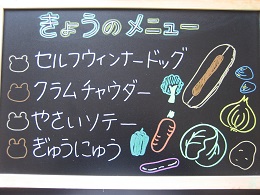 きょうのメニュー
セルフウィンナードッグ
クラムチャウダー
やさいソテー
ぎゅうにゅう